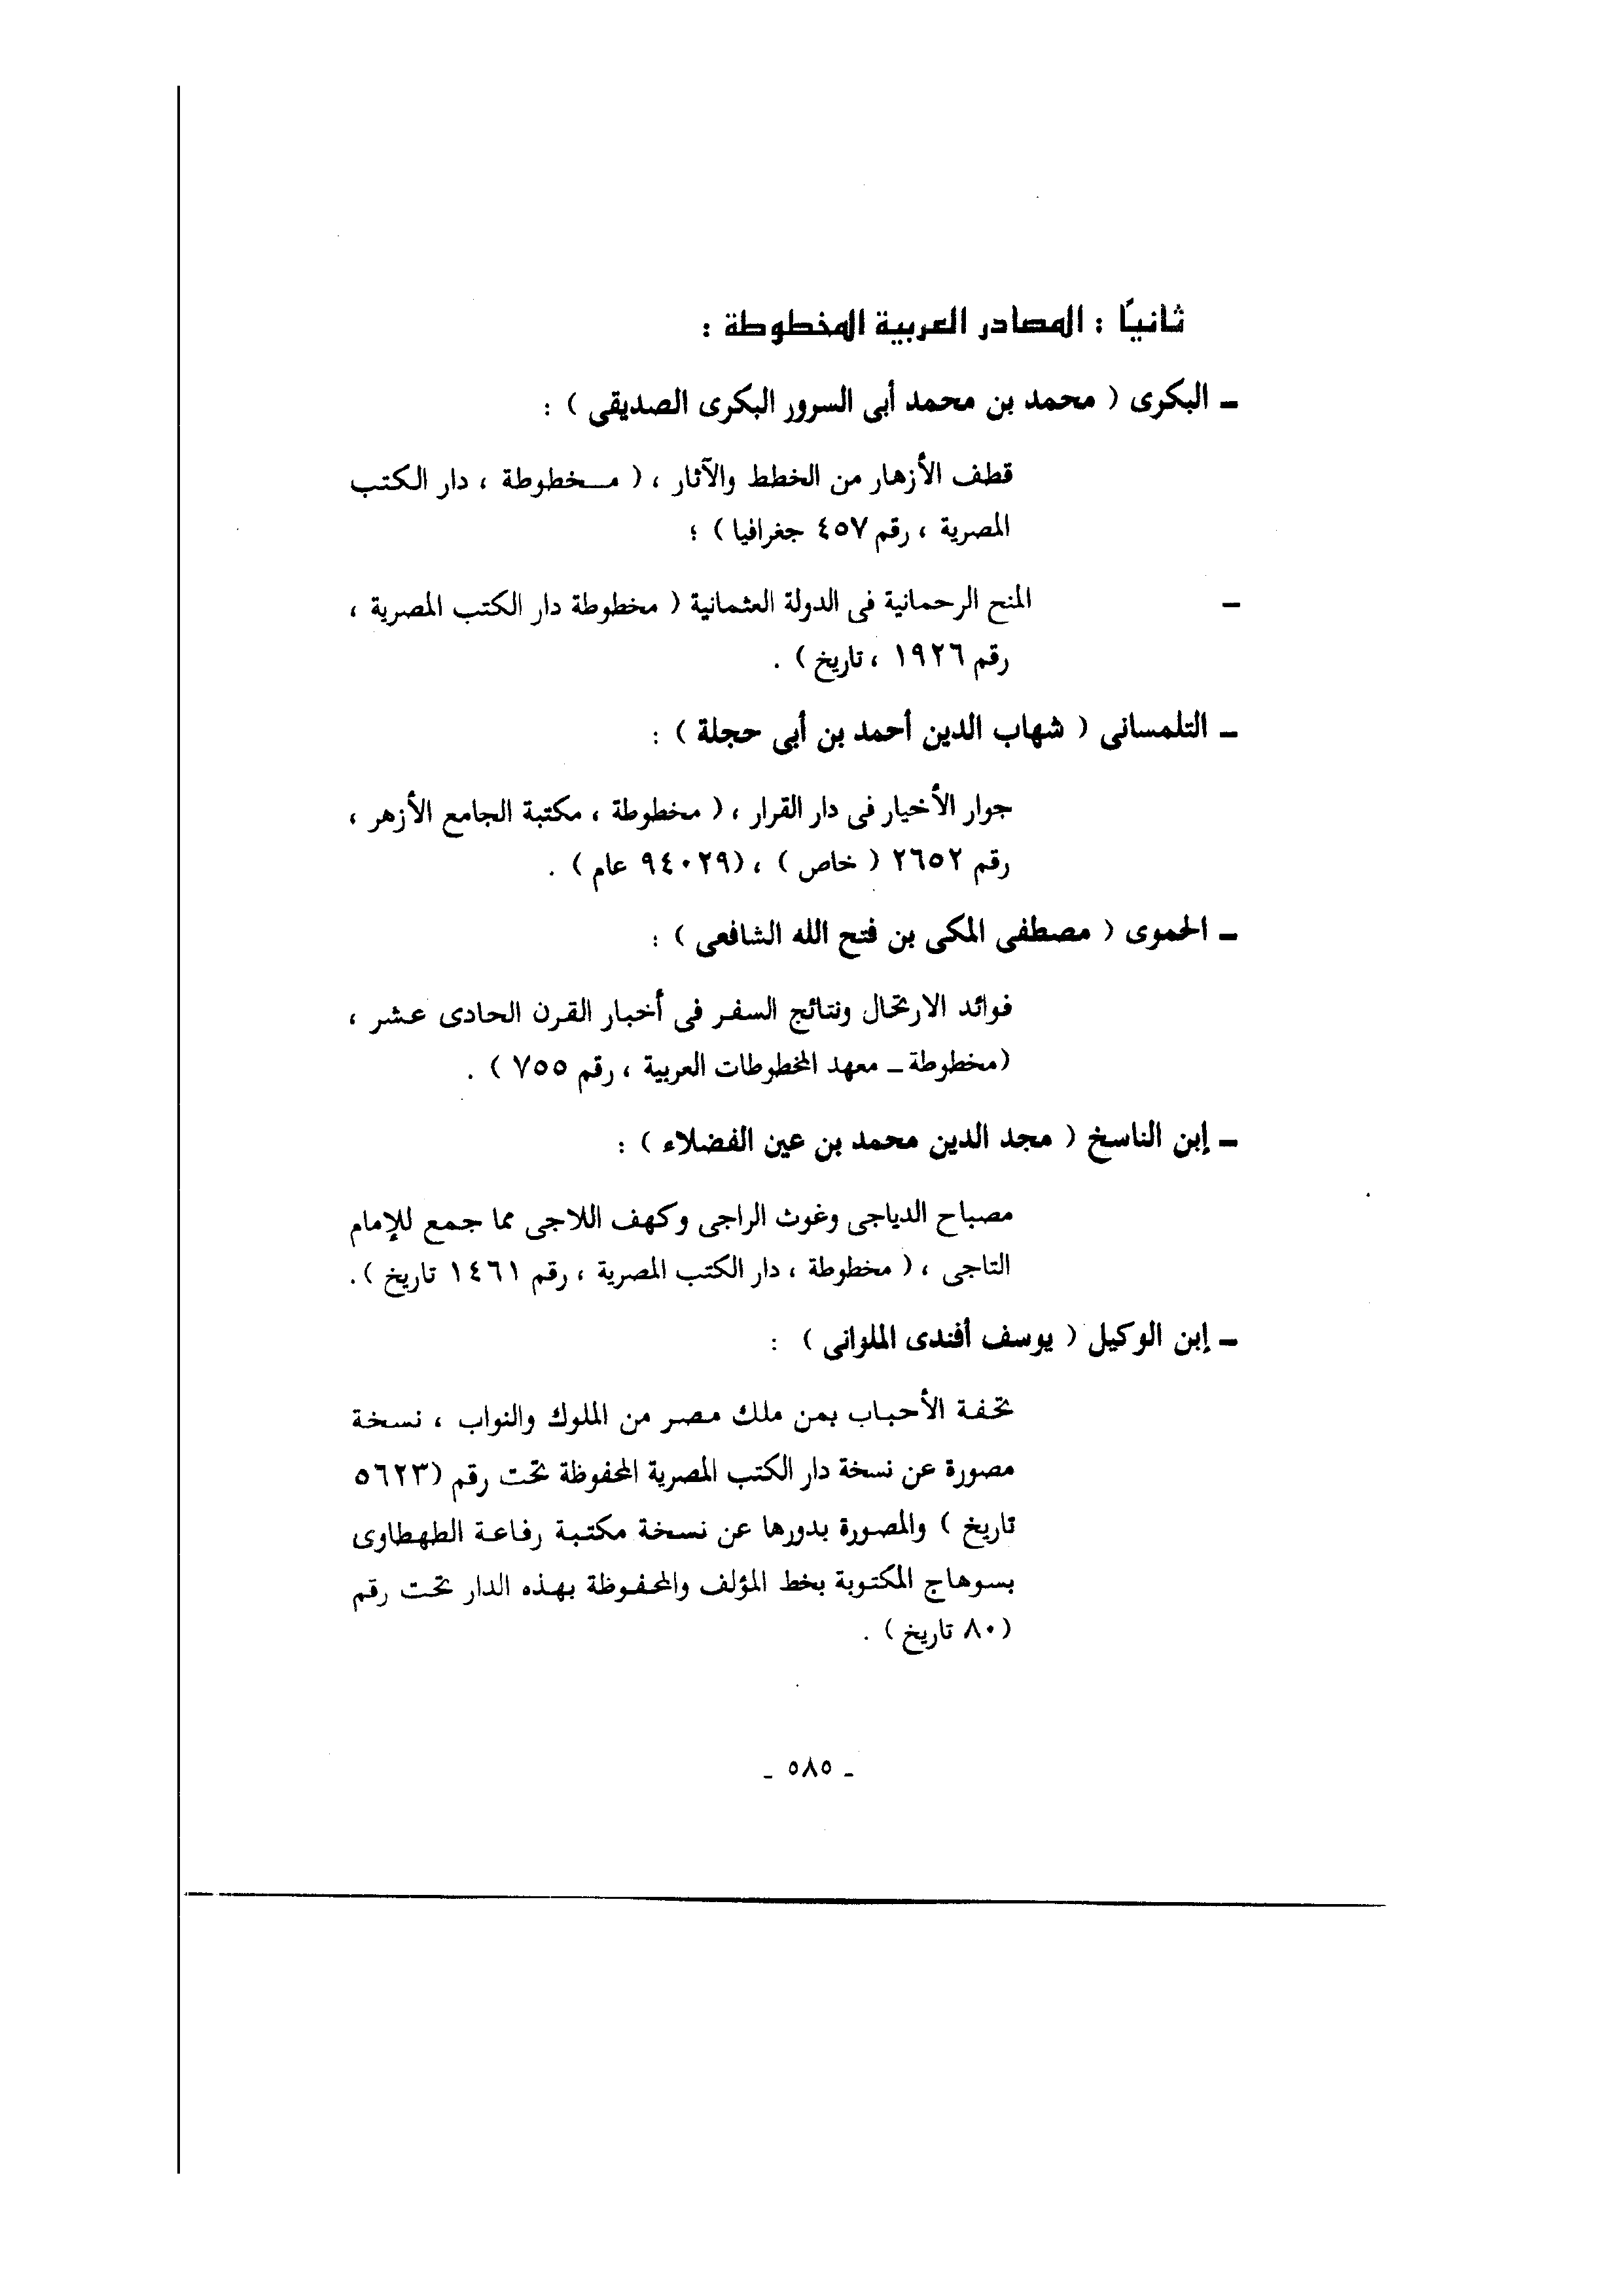 ثانيًا : المصادر العربية المخطوطة :
ـ البكرى ( محمد بن محمد أبى السرور البكرى الصديقى ) :
قطف الأزهار من الخطط والآثار ، ( مـخطوطة ، دار الكتب
المصرية ، رقم ٤٥٧ جغرافيا ) ؛
ـ المنح الرحمانية فى الدولة العثمانية ( مخطوطة دار الكتب المصرية ،
رقم ١٩٢٦ ، تاريخ ) .
ـ التلمسانى ( شهاب الدين أحمد بن أبى حجلة ) :
جوار الأخيار فى دار القرار ، ( مخطوطة ، مكتبة الجامع الأزهر ،
رقم ٢٦٥٢ ( خاص ) ، (٩٤٠٢٩ عام ) .
ـ الحموى ( مصطفى المكى بن فتح الله الشافعى ) :
فوائد الارتحال ونتائج السفر فى أخبار القرن الحادى عشر ،
(مخطوطة ـ معهد المخطوطات العربية ، رقم ٧٥٥ ) .
ـ إبن الناسخ ( مجد الدين محمد بن عين الفضلاء ) :
مصباح الدياجى وغوث الراجى وكهف اللاجى مما جمع للإمام
التاجى ، ( مخطوطة ، دار الكتب المصرية ، رقم ١٤٦١ تاريخ ).
ـ إبن الوكيل ( يوسف أفندى الملوانى ) :
تحفة الأحباب بمن ملك مصر من الملوك والنواب ، نسخة
مصورة عن نسخة دار الكتب المصرية المحفوظة تحت رقم (٥٦٢٣
تاريخ ) والمصورة بدورها عن نسخة مكتبة رفاعة الطهطاوى
بسوهاج المكتوبة بخط المؤلف والمحفوظة بهذه الدار تحت رقم
(٨٠ تاريخ ) .
ـ ٥٨٥ ـ